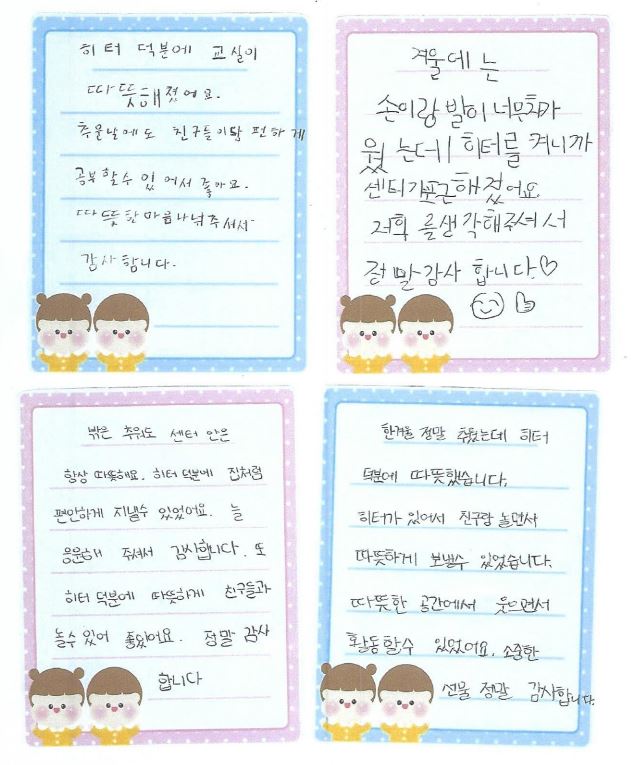 히터 덕분에 교실이
따뜻해졌어요.
추운날에도 친구들이랑 편하게
공부할수 있어서 좋아요.
따뜻한마음나눠주셔서
감사합니다.
겨울에는
손이랑 발이 너무차가
웠는데 히터를 켜니까
센터가포근해졌어요
저희를생각해주셔서
정말감사합니다♡
밖은 추워도 센터 안은
항상 따뜻해요. 히터 덕분에 집처럼
편안하게 지낼수 있었어요. 늘
응원해 주셔서 감사합니다. 또
히터 덕분에 따뜻하게 친구들과
놀수있어 좋았어요. 정말 감사
합니다
한겨울 정말 추웠는데 히터
덕분에 따뜻했습니다.
히터가 있어서 친구랑 놀면서
따뜻하게 보낼수 있었습니다.
따뜻한 공간에서 웃으면서
활동할수 있었어요. 소중한
선물 정말 감사합니다.